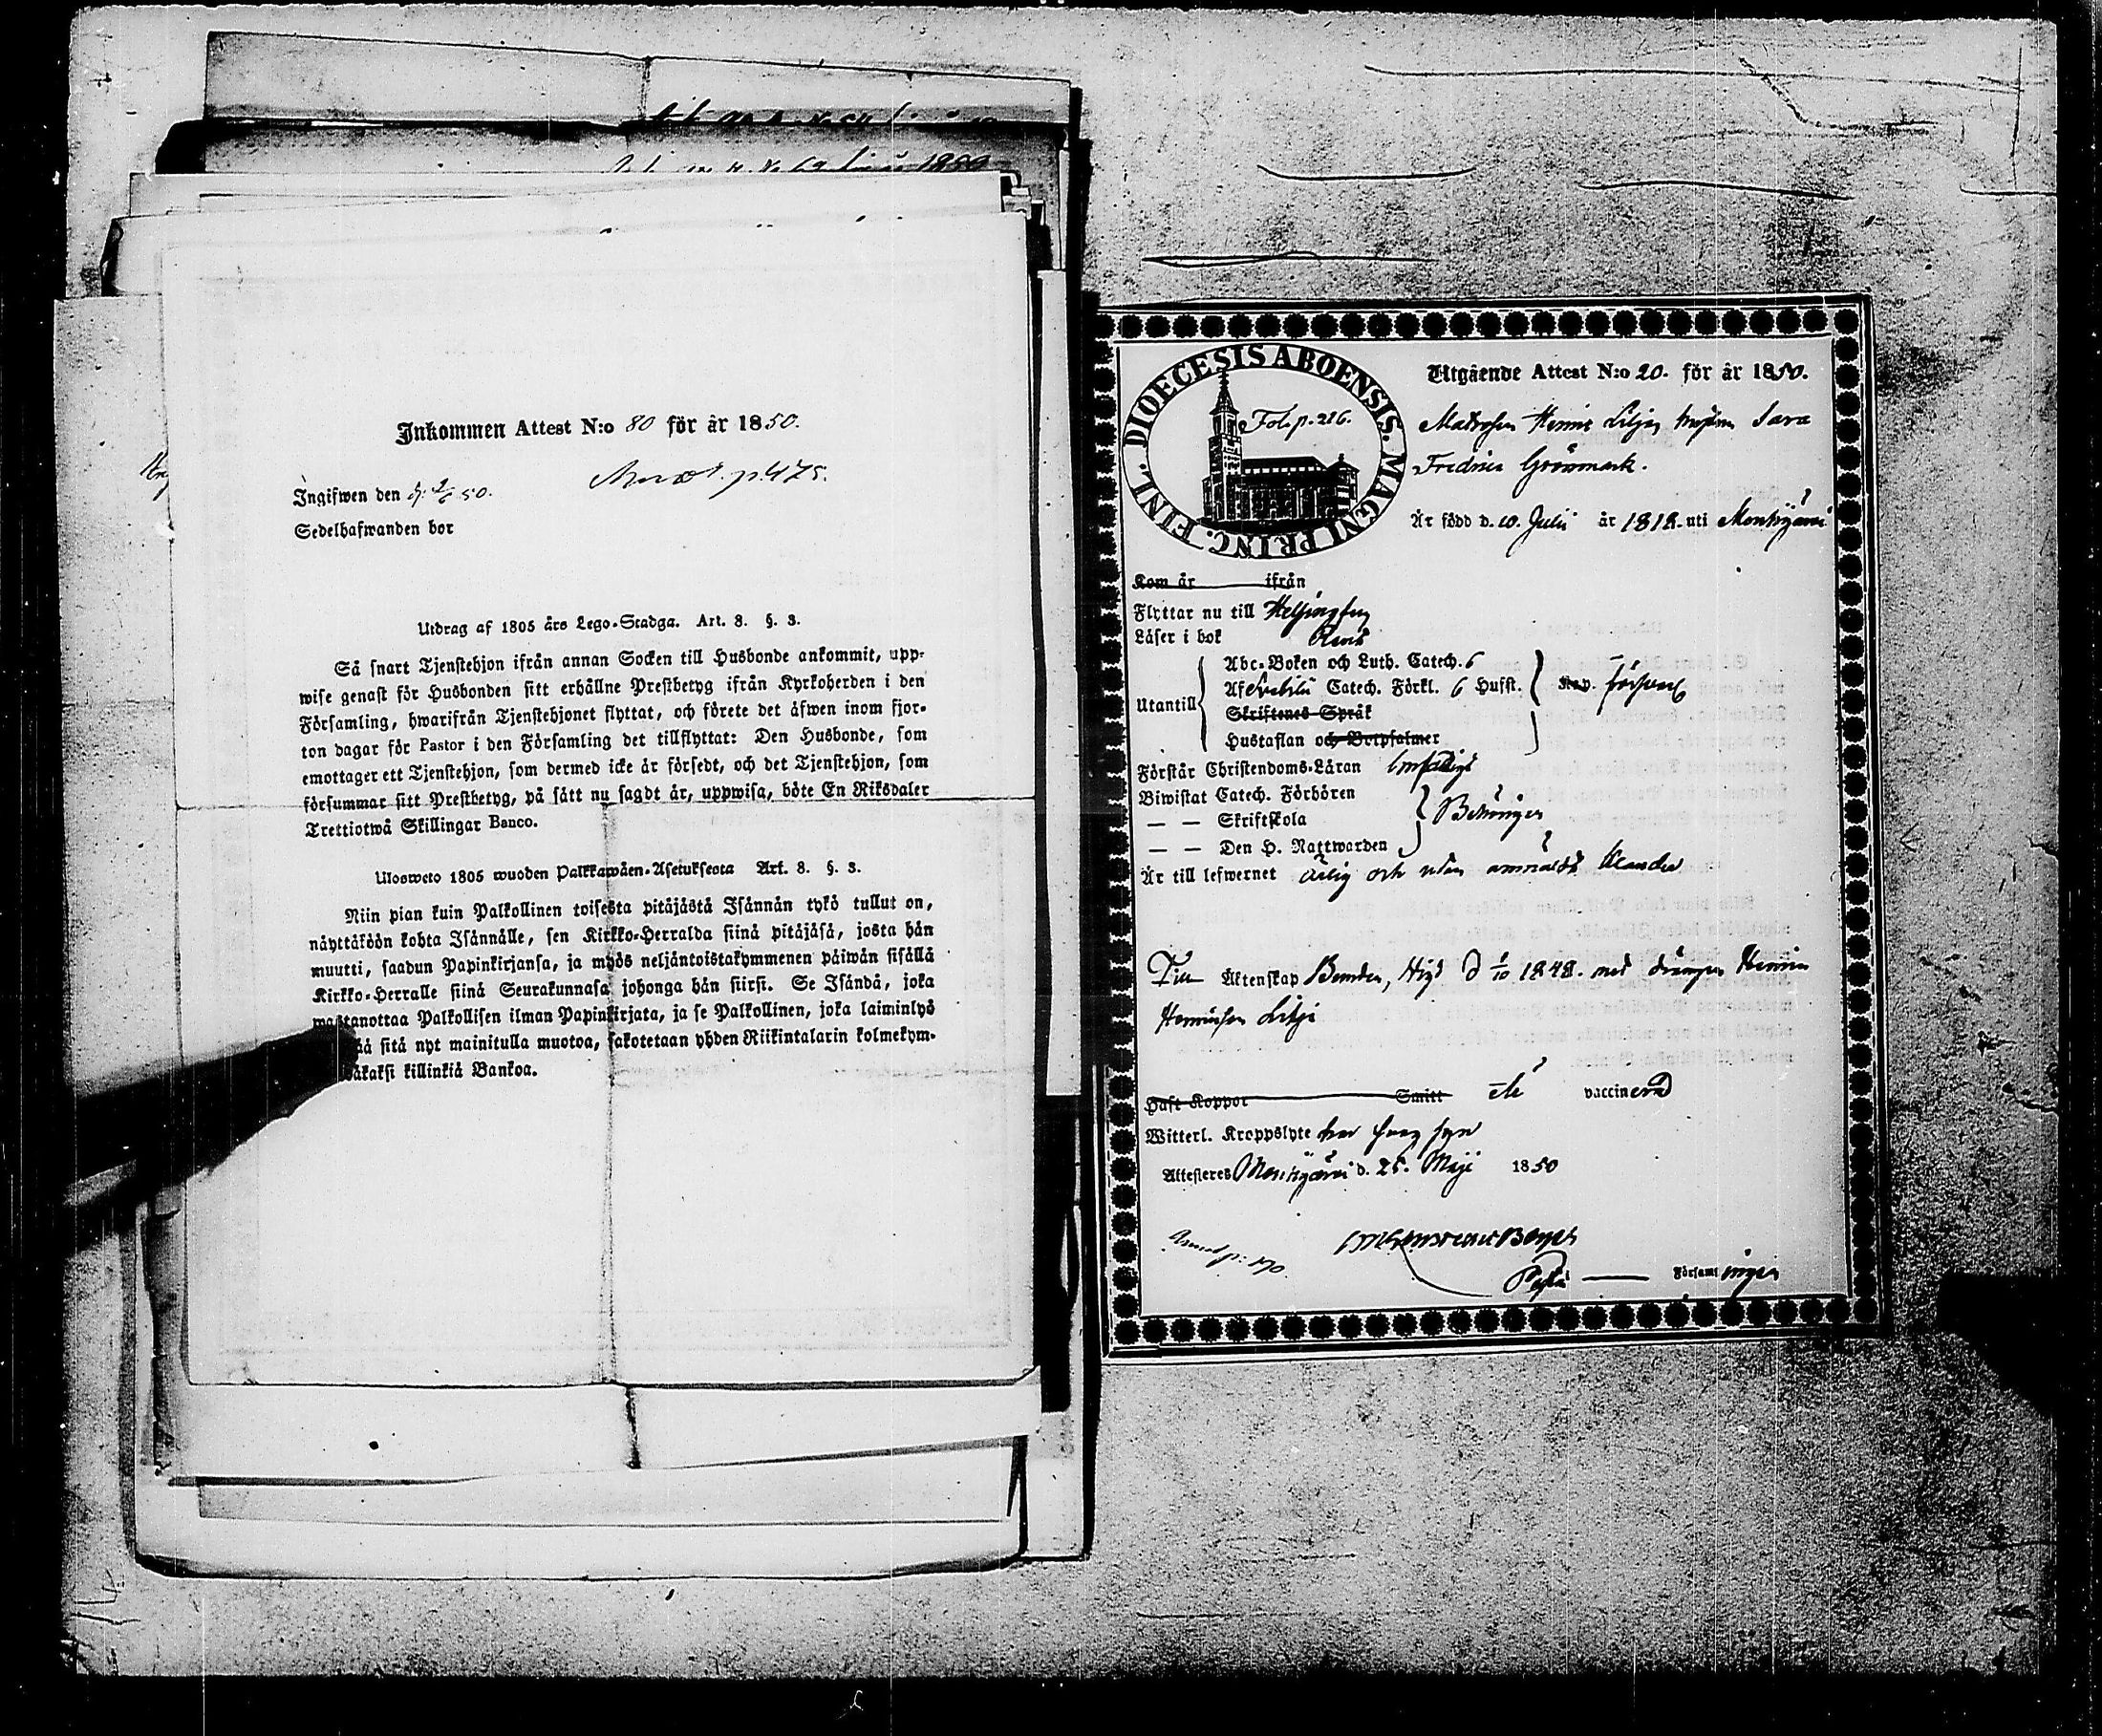 1850
Inkommen Attest N:o 80 för år 1850.
Ingifwen den 50.
p. 475.
Sedelhafwanden bor
Utdrag af 1805 års Lego-Stadga. Art. 8. §. 3.
Så snart Tjenstehjon ifrån annan Socken till Husbonde ankommit, upp-
wise genast för Husbonden sitt erhållne Prestbetyg ifrån Kyrkoherden i den
Församling, hwarifrån Tjenstehjonet flyttat, och förete det äfwen inom fjor-
ton dagar för Pastor i den Församling det tillflyttat: Den Husbonde, som
emottager ett Tjenstehjon, som dermed icke är försedt, och det Tjenstehjon, som
försummar sitt Prestbetyg, på sätt nu sagdt är, uppwisa, böte En Riksdaler
Trettiotwå Skillingar Banco.
Uloswето 1805 wuoden Palkkawäen-Asetuksesta Art. 8. §. 3.
Niin pian kuin Palkollinen toisesta pitäjästä Isännän tykö tullut on,
näyttäköön kohta Isännälle, sen Kirkko-Herralda siinä pitäjäsä, josta hän
muutti, saadun Papinkirjansa, ja myös neljäntoistakymmenen päiwän sisällä
Kirkko-Herralle siinä Seurakunnasa johonga hän siirsi. Se Isändä, joka
wastanottaa Palkollisen ilman Papinkirjata, ja se Palkollinen, joka laiminlyö
sitä nyt mainitulla muotoa, sakotetaan yhden Riikintalarin kolmekym-
killinkiä Bankoa.
DIOECESIS ABOENSIS. MAGNI PRINC. FINL.
Fol. p. 216.
Utgående Attest N:o 20. för år 1850.
Matrosen Henric Liljas hustru Sara
Fredrica Grönmark.
Är född d. 10. Julii år 1818. uti Mouhijärvi
Kom år ifrån
Flyttar nu till Helsingfors
Läser i bok Rent
Utantill
Abc-Boken och Luth. Catech. 6
Af Svebilii Catech. Förkl. 6 Hufst.
försvarl
Skriftenes Språk
Hustaflan och Botpsalmer
Förstår Christendoms-Läran
Biwistat Catech. Förhören
— — Skriftskola
— — Den H. Nattwarden
Behörigen
Är till lefwernet ärlig och utan anmäldt klander
Till Äktenskap Bunden, Vigd d 1/10 1848. med drängen Henric
Henricsson Lilja
Haft Koppor Smitt vaccinerad
Witterl. Kroppslyte har svag syn
Attesteres Mouhijärvi d. 25. Maji 1850
p. 170.
Församlingen